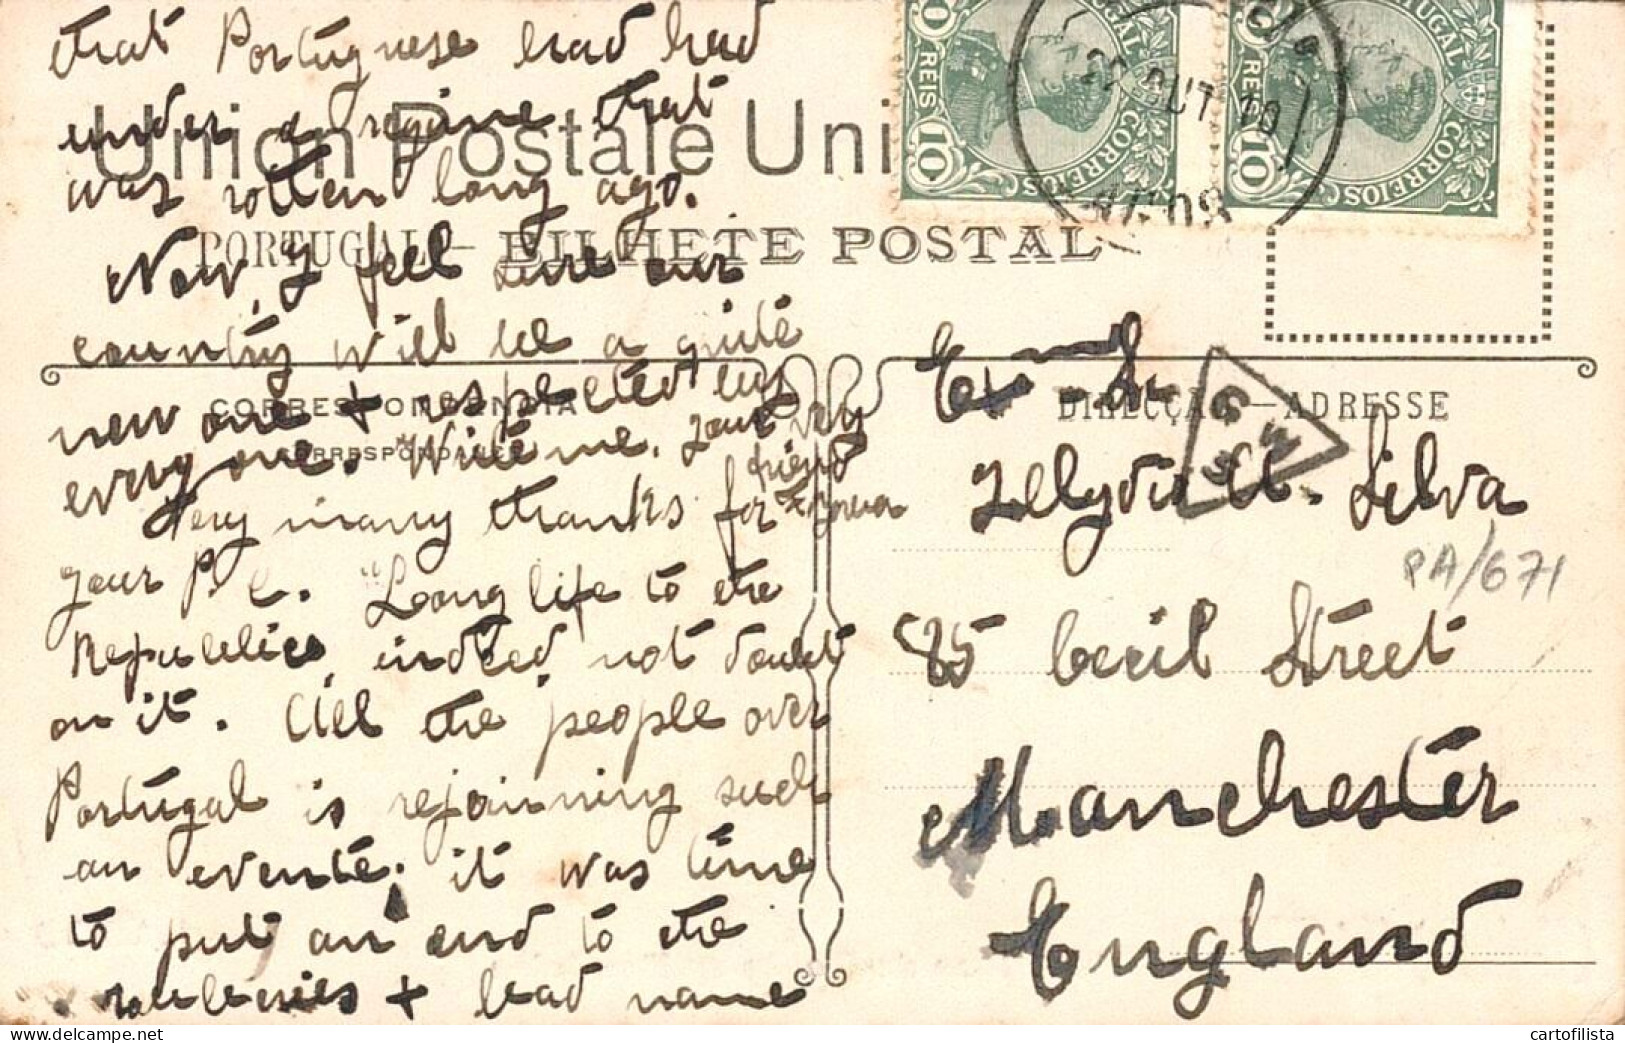 Very many thanks for
your P C. "Long life to the
Republic, indeed, not doubt
on it. All the people over
Portugal is rejoinning such
an evente; it was time
to put an end to the
roubberies + bead name
that Portuguese had had
under a regime that
was rotten long ago.
Now, I feel sure our
country will be a quite
new one + respected by
every one. Write me. Your very
friend
Union Postale Uni
PORTUGAL - BILHETE POSTAL
CORRESPONDENCIA
CORRESPONDANCE
DIRECÇÃO - ADRESSE
10 REIS CORREIOS PORTUGAL
10 REIS CORREIOS PORTUGAL
22 OUT 10
A. Silva
85 Cecil Street
Manchester
England
PA/671
cartofilista